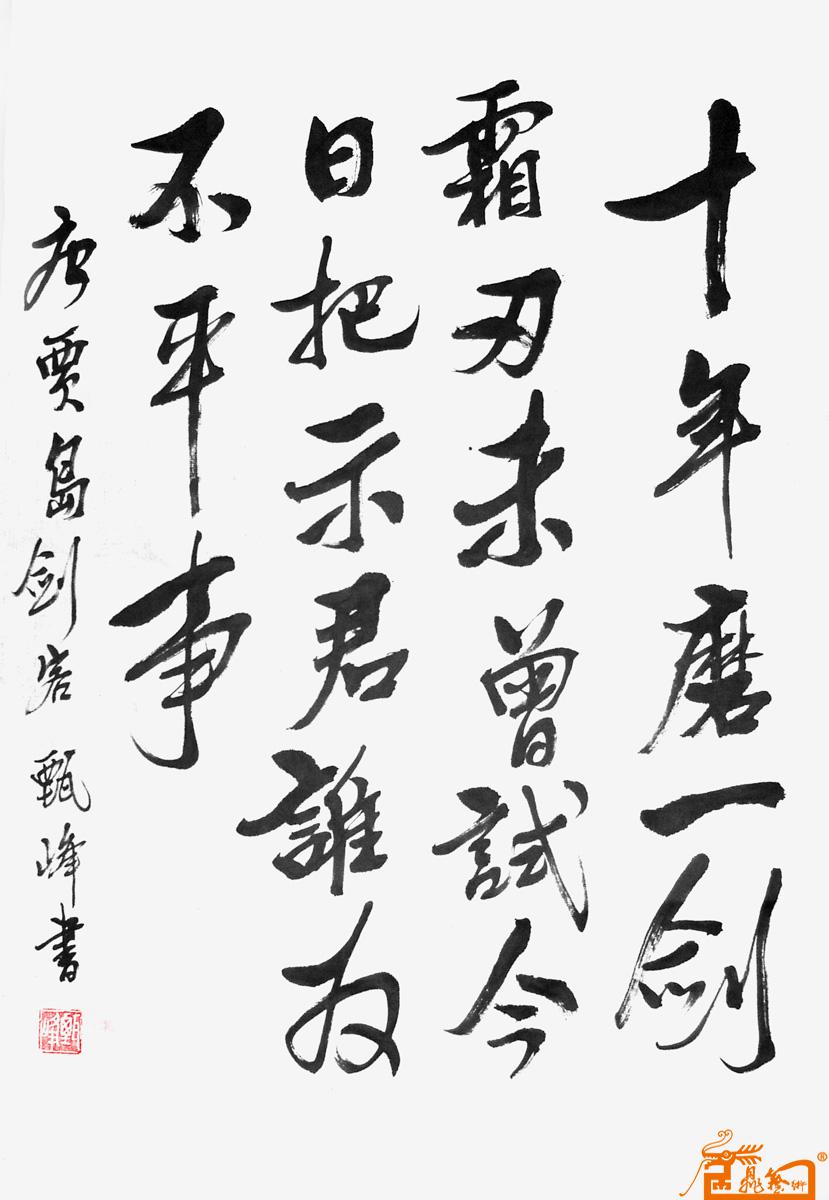 十年磨一剑
霜刃未曾試今
日把示君誰有
不平事
唐贾島剑客 甄峰書